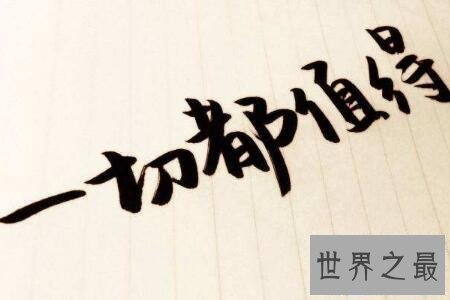 一切都值得
世界之最